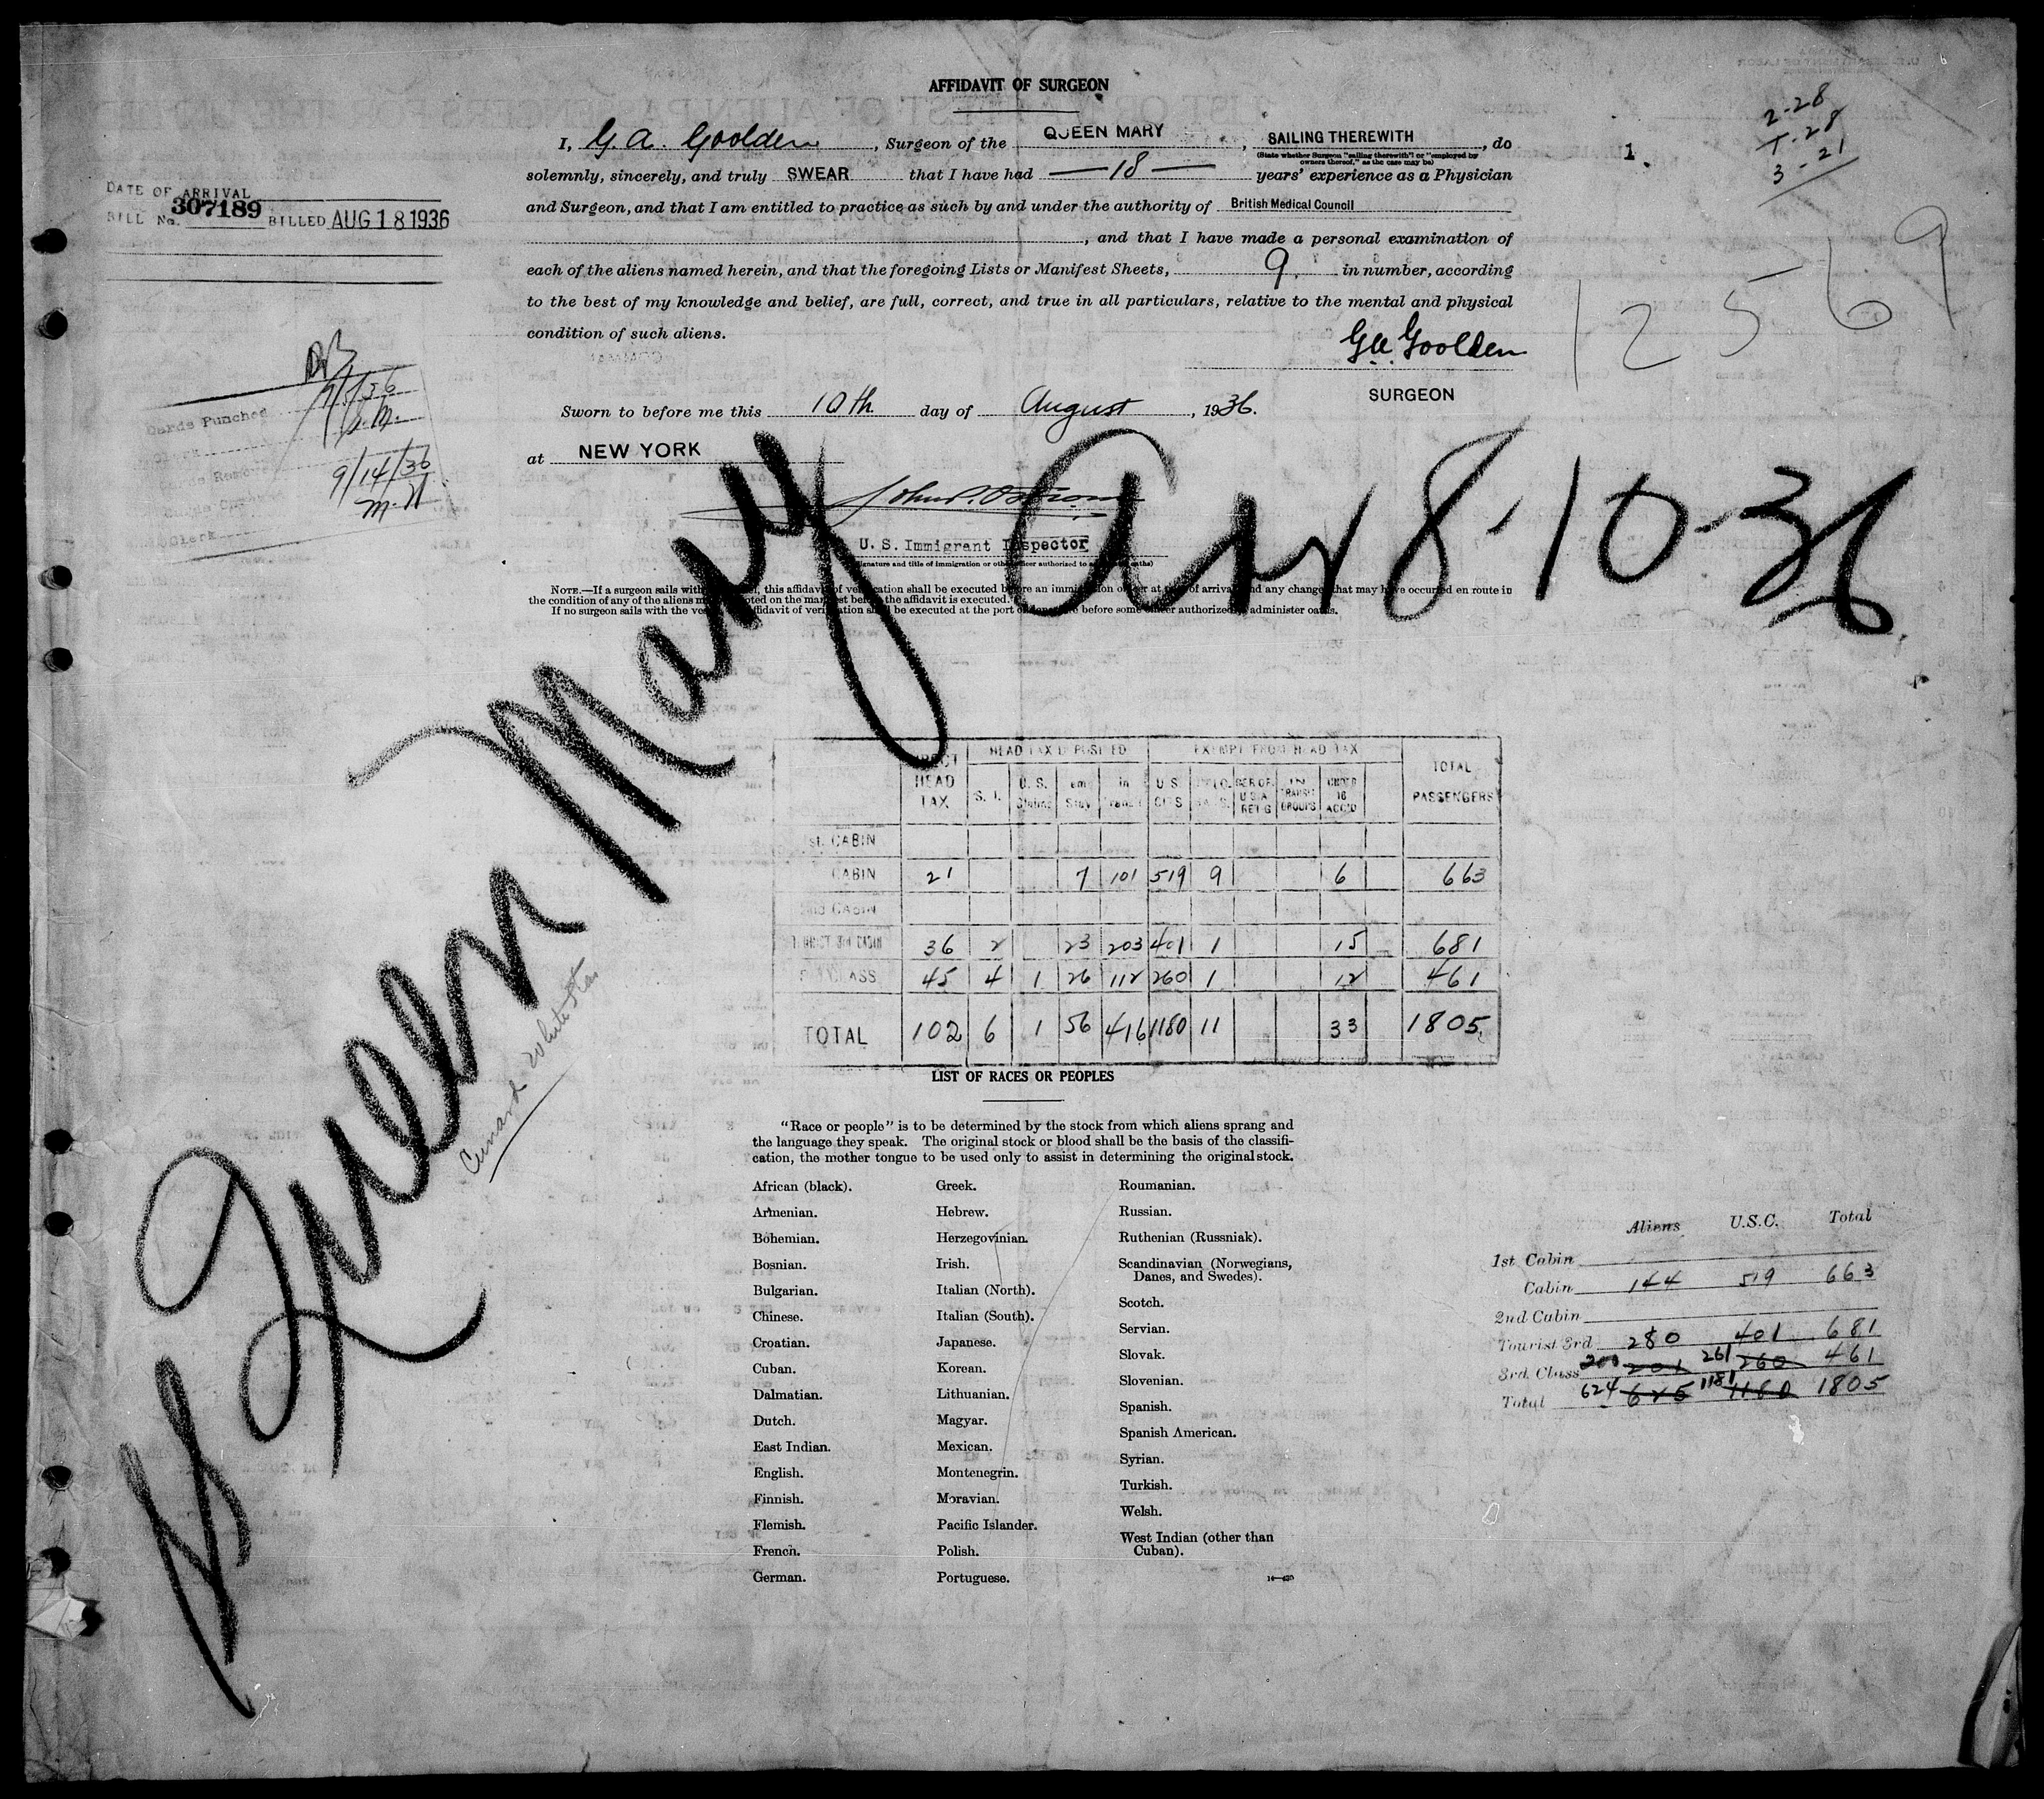 AFFIDAVIT OF SURGEON
I, G. A. Goolden, Surgeon of the QUEEN MARY, SAILING THEREWITH, do
(State whether Surgeon "sailing therewith" or "employed by owners thereof," as the case may be)
solemnly, sincerely, and truly SWEAR that I have had —18— years' experience as a Physician
and Surgeon, and that I am entitled to practice as such by and under the authority of British Medical Council
, and that I have made a personal examination of
each of the aliens named herein, and that the foregoing Lists or Manifest Sheets, 9. in number, according
to the best of my knowledge and belief, are full, correct, and true in all particulars, relative to the mental and physical
condition of such aliens.
G A Goolden
SURGEON
Sworn to before me this 10th day of August, 1936.
at NEW YORK
U. S. Immigrant Inspector
(Signature and title of immigration or other officer authorized to administer oaths)
1.
2-28
T-28
3-21
1 2 5 6 9
DATE OF ARRIVAL
BILL No. 307189 BILLED AUG 18 1936
Cards Punched
9/14/36
M.H
Clerk
NOTE.—If a surgeon sails with the vessel, this affidavit of verification shall be executed before an immigration officer at port of arrival and any change that may have occurred en route in
the condition of any of the aliens must be noted on the manifest before the affidavit is executed.
If no surgeon sails with the vessel, affidavit of verification shall be executed at the port of departure before some officer authorized to administer oaths.
SS Queen Mary Arr 8-10-36
Cunard White Star
HEAD TAX DEPOSITED EXEMPT FROM HEAD TAX
DIRECT HEAD TAX S. I. U. S. em Stay in Transit U. S. CITS IN TRANSIT GROUPS UNDER 16 ACC'D TOTAL PASSENGERS
1st. CABIN
CABIN 21 7 101 519 9 6 663
2nd CABIN
TOURIST 3rd CABIN 36 2 23 203 401 1 15 681
3rd CLASS 45 4 1 26 112 260 1 12 461
TOTAL 102 6 1 56 416 1180 11 33 1805
LIST OF RACES OR PEOPLES
"Race or people" is to be determined by the stock from which aliens sprang and
the language they speak. The original stock or blood shall be the basis of the classifi-
cation, the mother tongue to be used only to assist in determining the original stock.
African (black).
Armenian.
Bohemian.
Bosnian.
Bulgarian.
Chinese.
Croatian.
Cuban.
Dalmatian.
Dutch.
East Indian.
English.
Finnish.
Flemish.
French.
German.
Greek.
Hebrew.
Herzegovinian.
Irish.
Italian (North).
Italian (South).
Japanese.
Korean.
Lithuanian.
Magyar.
Mexican.
Montenegrin.
Moravian.
Pacific Islander.
Polish.
Portuguese.
Roumanian.
Russian.
Ruthenian (Russniak).
Scandinavian (Norwegians,
Danes, and Swedes).
Scotch.
Servian.
Slovak.
Slovenian.
Spanish.
Spanish American.
Syrian.
Turkish.
Welsh.
West Indian (other than
Cuban).
Aliens U.S.C. Total
1st Cabin
Cabin 144 519 663
2nd Cabin
Tourist 3rd 280 401 681
3rd. Class 200 201 261 260 461
Total 624 625 1181 1180 1805